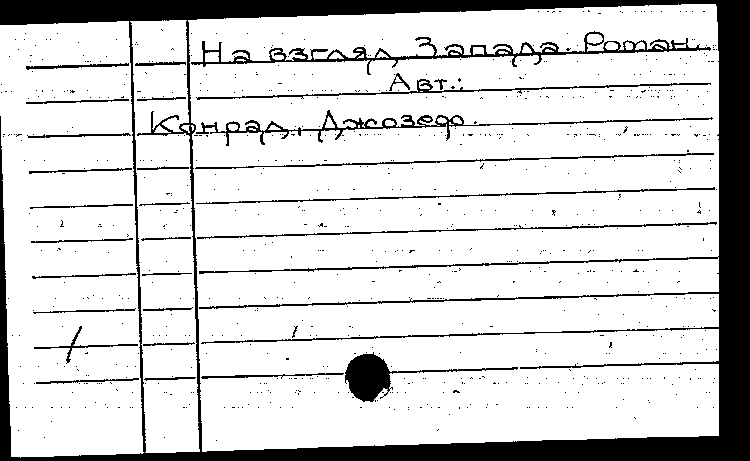 На взгляд Запада. Роман.
Авт.:
Конрад, Джозеф.